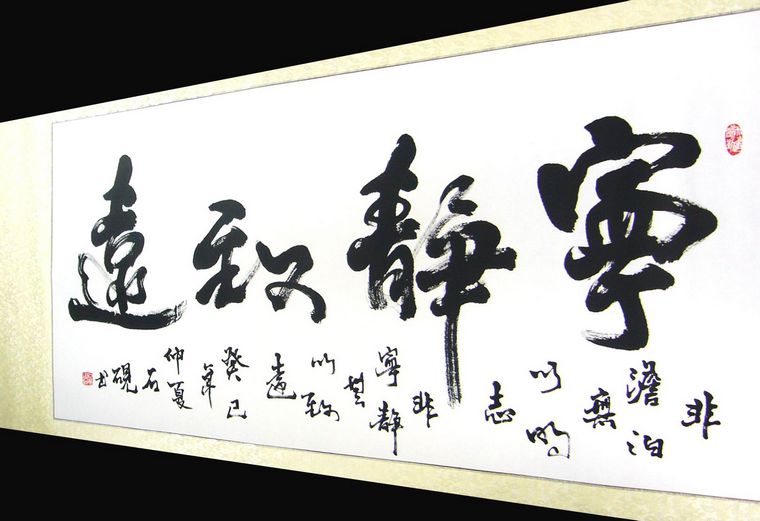 寧靜致遠
非澹泊無以明志非寧靜無以致遠癸巳年仲夏石硯书